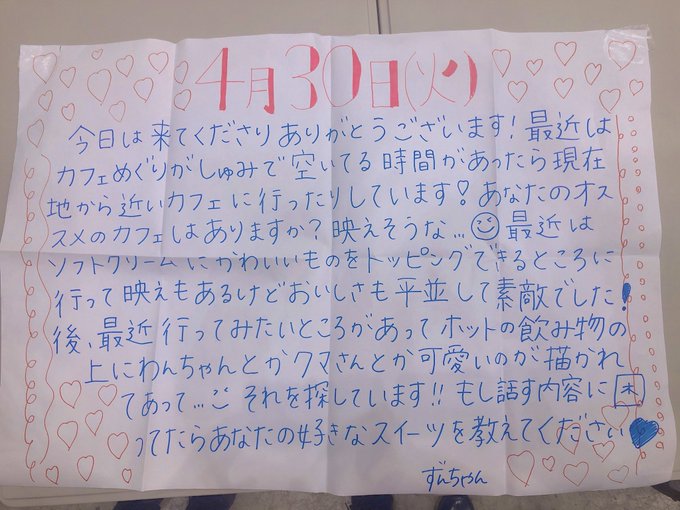 4月30日(火)
今日は来てくださりありがとうございます!最近は
カフェめぐりがしゅみで空いてる時間があったら現在
地から近いカフェに行ったりしています!あなたのオス
スメのカフェはありますか?映えそうな…最近は
ソフトクリームにかわいいものをトッピングできるところに
行って映えもあるけどおいしさも平並して素敵でした!
後、最近行ってみたいところがあってホットの飲み物の
上にわんちゃんとかクマさんとか可愛いのが描かれ
てあって…それを探しています!!もし話す内容に困
ってたらあなたの好きなスイーツを教えてください
ずんちゃん